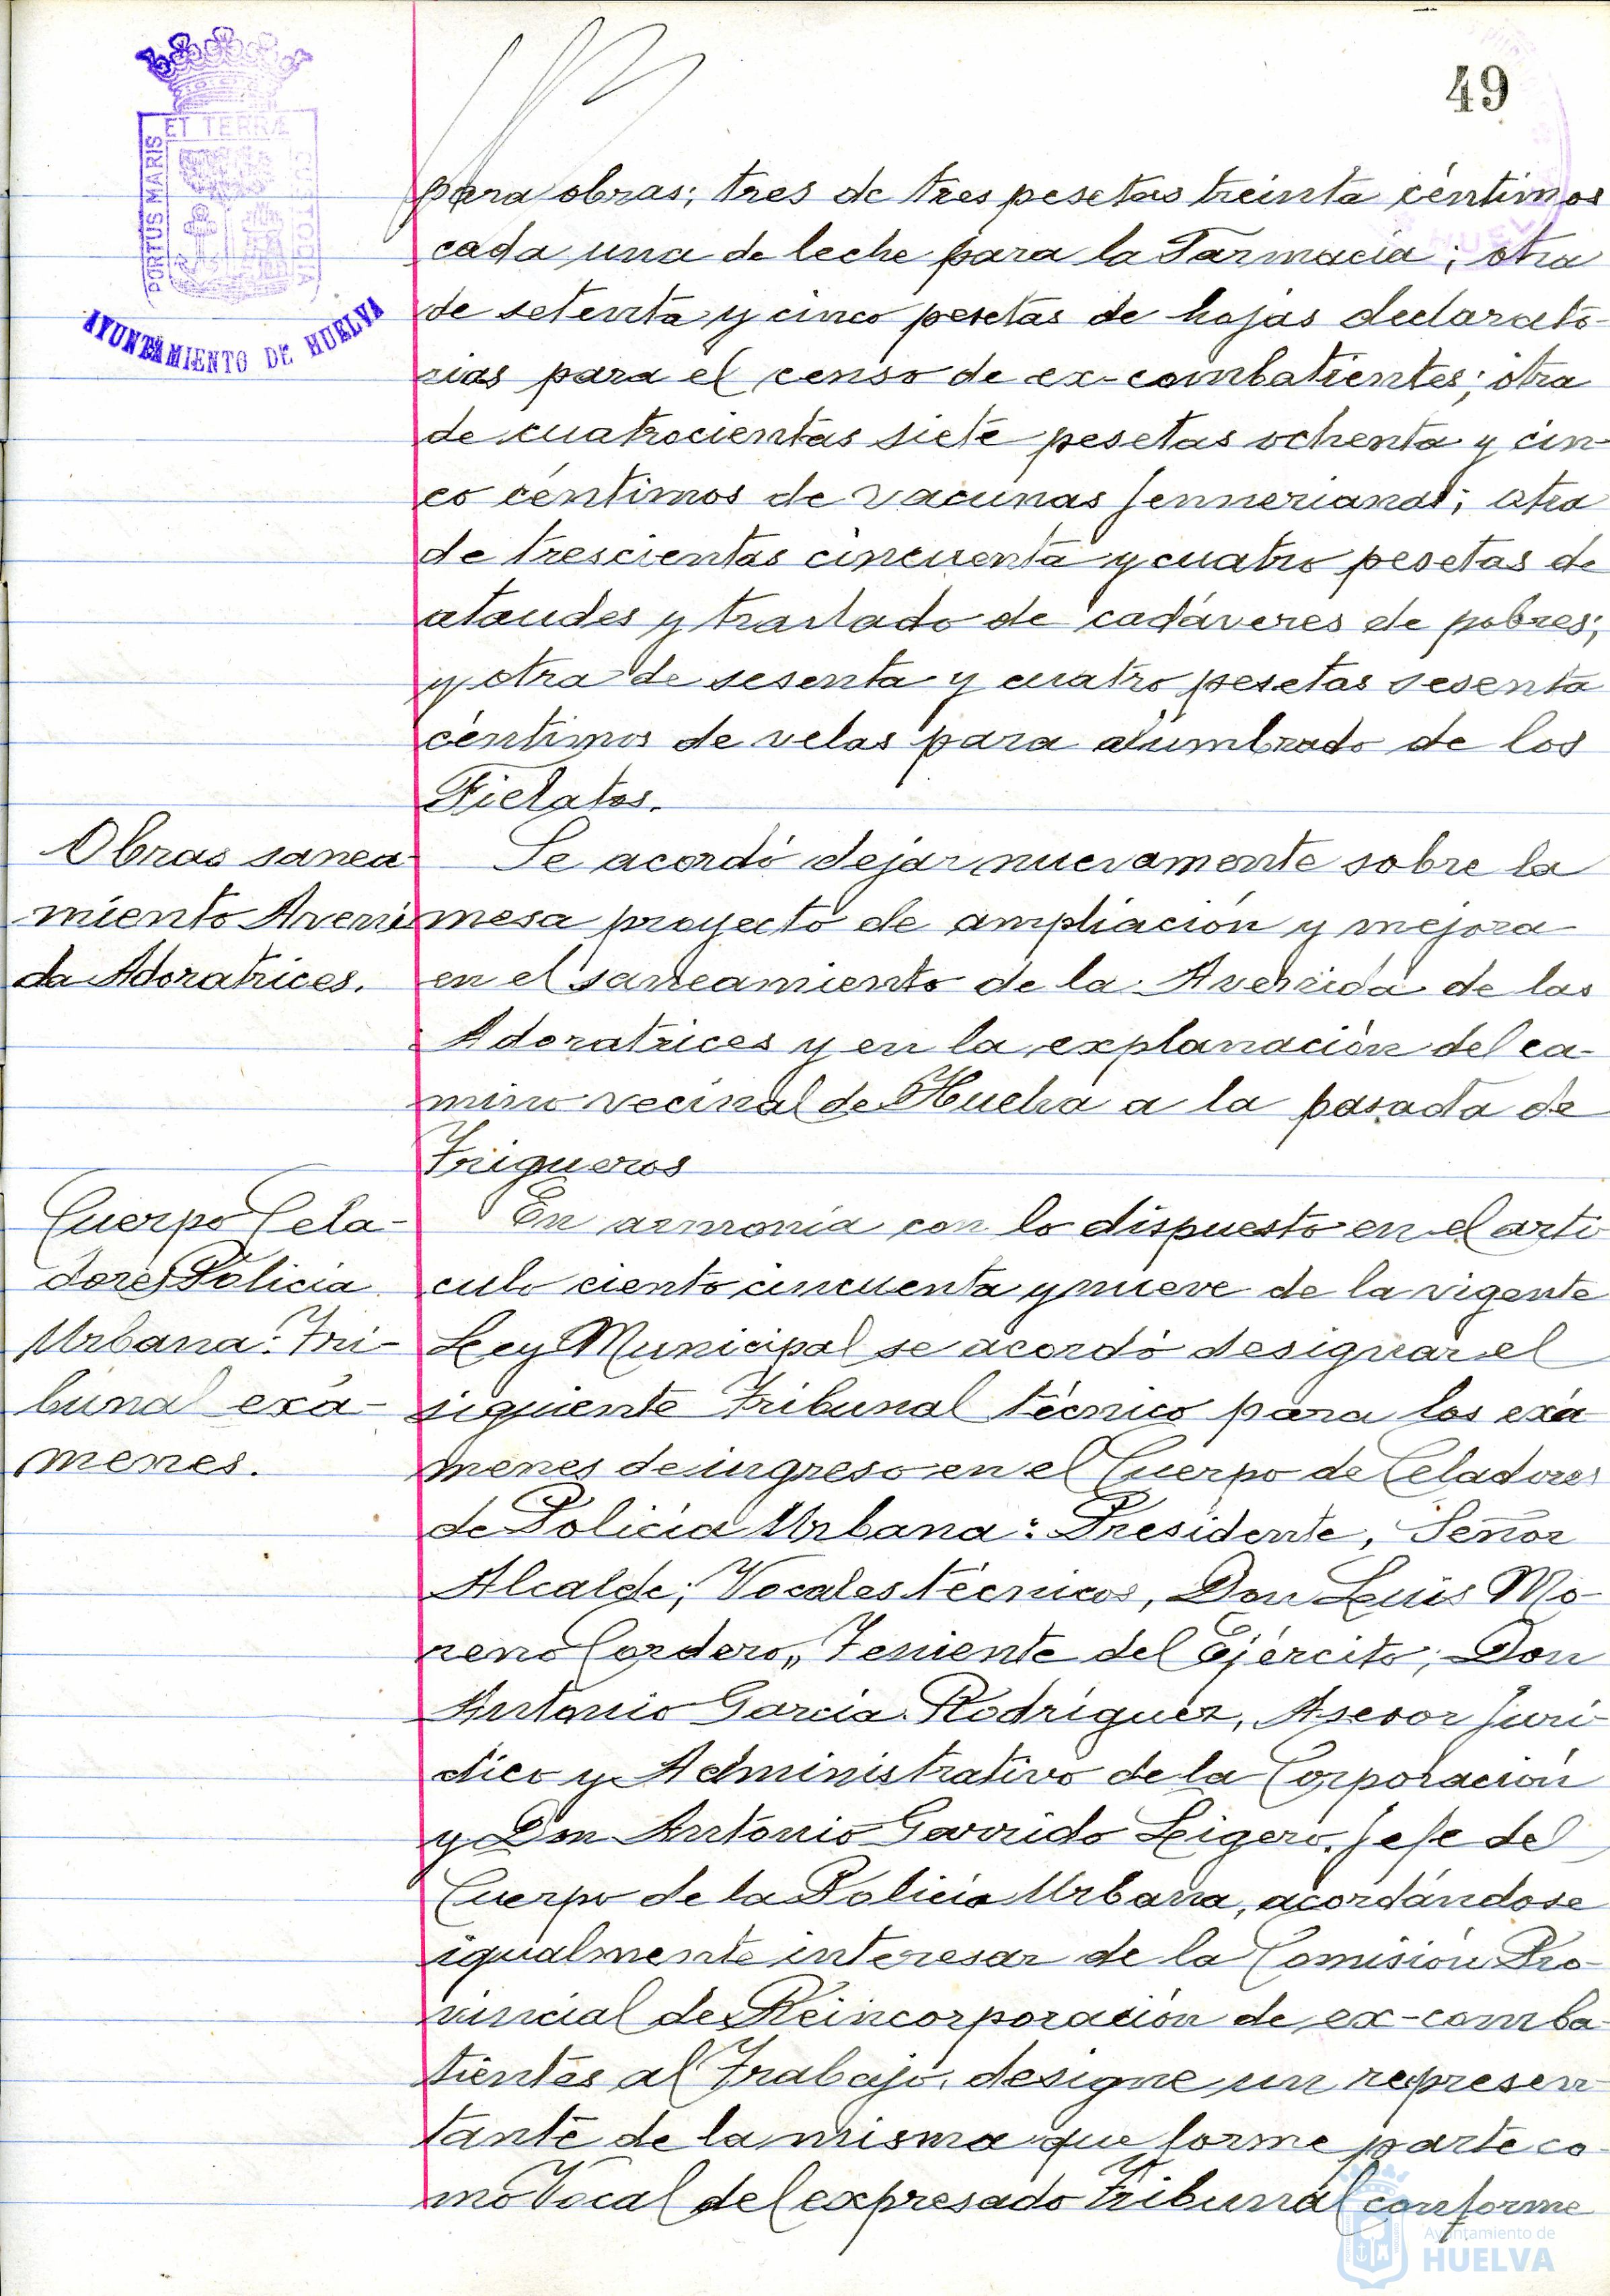 49
ET TERRÆ
PORTUS MARIS
CUSTODIA
AYUNTAMIENTO DE HUELVA
para obras; tres de tres pesetas treinta céntimos
cada una de leche para la Farmacia; otra
de setenta y cinco pesetas de hojas declarato-
rias para el censo de ex-combatientes; otra
de cuatrocientas siete pesetas ochenta y cin-
co céntimos de vacunas Jennerianas; otra
de trescientas cincuenta y cuatro pesetas de
ataudes y traslado de cadáveres de pobres;
y otra de sesenta y cuatro pesetas sesenta
céntimos de velas para alumbrado de los
Fielatos.
Obras sanea-
miento Aveni
da Adoratrices.
Se acordó dejar nuevamente sobre la
mesa proyecto de ampliación y mejora
en el saneamiento de la Avenida de las
Adoratrices y en la explanación del ca-
mino vecinal de Huelva a la pasada de
Trigueros
Cuerpo Cela-
dores Policía
Urbana: Tri-
bunal exá-
menes.
En armonía con lo dispuesto en el arti
culo ciento cincuenta y nueve de la vigente
Ley Municipal se acordó designar el
siguiente Tribunal técnico para los exá
menes de ingreso en el Cuerpo de Celadores
de Policía Urbana: Presidente, Señor
Alcalde; Vocales técnicos, Don Luis Mo-
reno Cordero,, Teniente del Ejército; Don
Antonio García Rodríguez, Asesor Juri-
dico y Administrativo de la Corporación
y Don Antonio Garrido Ligero, Jefe del
Cuerpo de la Policía Urbana, acordándose
igualmente interesar de la Comisión Pro-
vincial de Reincorporación de ex-comba-
tientes al Trabajo, designe un represen-
tante de la misma que forme parte co-
mo Vocal del expresado Tribunal conforme
Ayuntamiento de
HUELVA